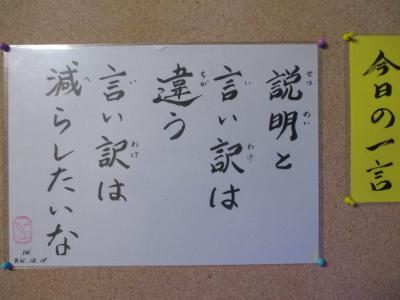 今日の一言
説明と
言い訳は
違う
言い訳は
減らしたいな